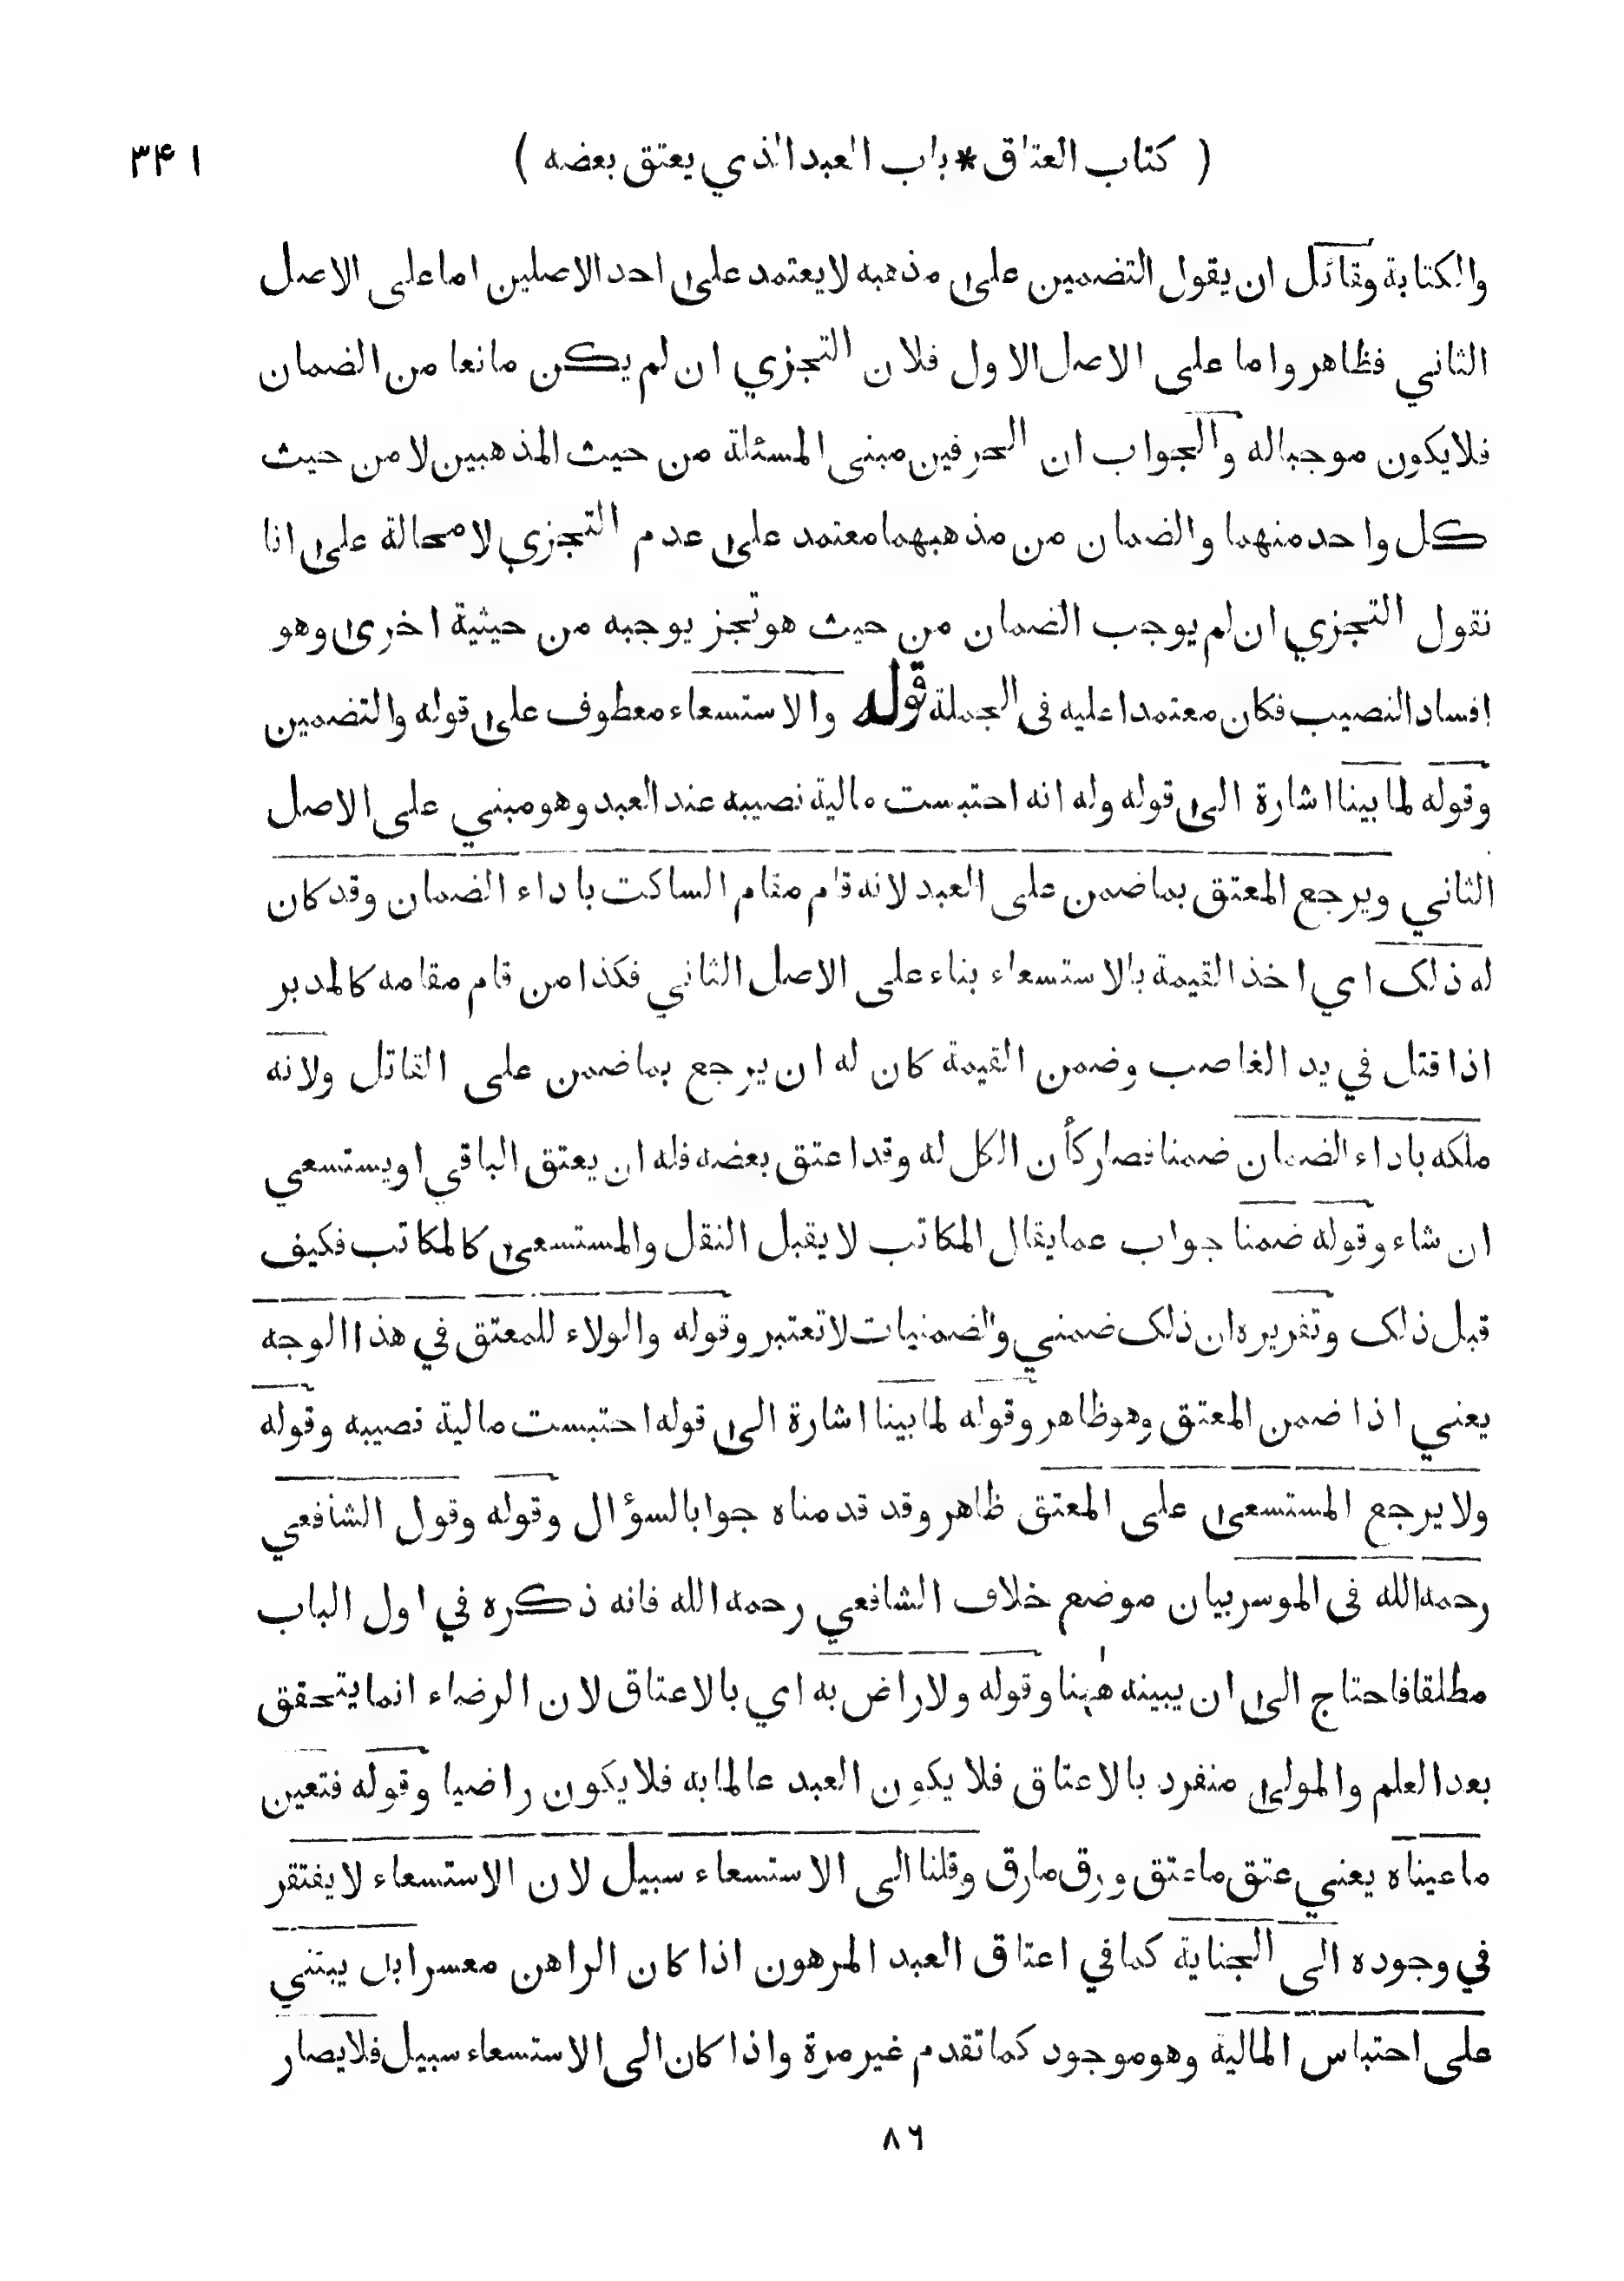 ( كتاب العتاق * باب العبد الذي يعتق بعضه ) ٣۴١
والكتابة وقائل ان يقول التضمين على مذهبه لا يعتمد على احد الاصلين اما على الاصل
الثاني فظاهر واما على الاصل الاول فلان التجزي ان لم يكن مانعا من الضمان
فلا يكون موجبا له والجواب ان الحرفين مبنى المسئلة من حيث المذهبين لا من حيث
كل واحد منهما والضمان من مذهبهما معتمد على عدم التجزي لا محالة على انا
نقول التجزي ان لم يوجب الضمان من حيث هو تجز يوجبه من حيثية اخرى وهو
افساد النصيب فكان معتمدا عليه فى الجملة قوله والاستسعاء معطوف على قوله والتضمين
وقوله لما بينا اشارة الى قوله وله انه احتبست مالية نصيبه عند العبد وهو مبني على الاصل
الثاني ويرجع المعتق بما ضمن على العبد لانه قام مقام الساكت باداء الضمان وقد كان
له ذلك اي اخذ القيمة بالاستسعاء بناء على الاصل الثاني فكذا من قام مقامه كالمدبر
اذا قتل في يد الغاصب وضمن القيمة كان له ان يرجع بما ضمن على القاتل ولانه
ملكه باداء الضمان ضمنا فصار كأن الكل له وقد اعتق بعضه فله ان يعتق الباقي او يستسعي
ان شاء وقوله ضمنا جواب عما يقال المكاتب لا يقبل النقل والمستسعى كالمكاتب فكيف
قبل ذلك وتقريره ان ذلك ضمني والضمنيات لا تعتبر وقوله والولاء للمعتق في هذا الوجه
يعني اذا ضمن المعتق وهو ظاهر وقوله لما بينا اشارة الى قوله احتبست مالية نصيبه وقوله
ولا يرجع المستسعى على المعتق ظاهر وقد قدمناه جوابا لسؤال وقوله وقول الشافعي
رحمه الله فى الموسر بيان موضع خلاف الشافعي رحمه الله فانه ذكره في اول الباب
مطلقا فاحتاج الى ان يبينه هٰهنا وقوله ولا راض به اي بالاعتاق لان الرضاء انما يتحقق
بعد العلم والمولى منفرد بالاعتاق فلا يكون العبد عالما به فلا يكون راضيا وقوله فتعين
ما عيناه يعني عتق ما عتق ورق ما رق وقلنا الى الاستسعاء سبيل لان الاستسعاء لا يفتقر
في وجوده الى الجناية كما في اعتاق العبد المرهون اذا كان الراهن معسرا بل يبتني
على احتباس المالية وهو موجود كما تقدم غير مرة واذا كان الى الاستسعاء سبيل فلا يصار
٨٦